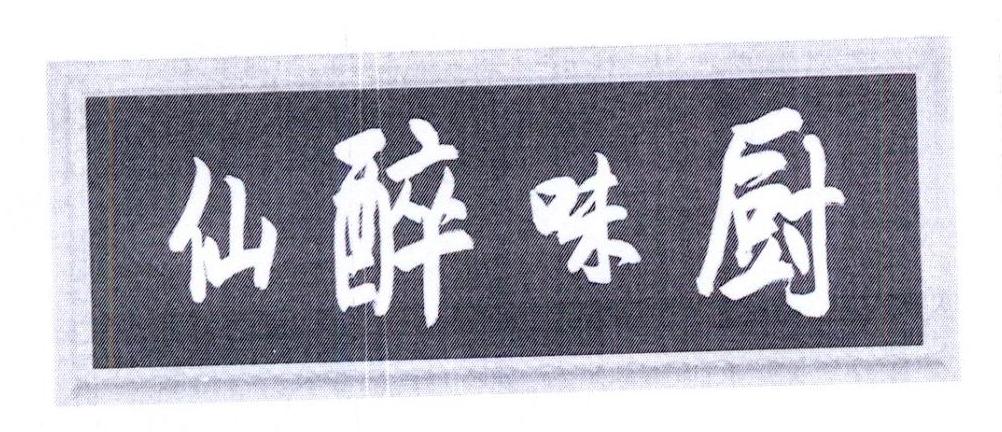 厨味醉仙